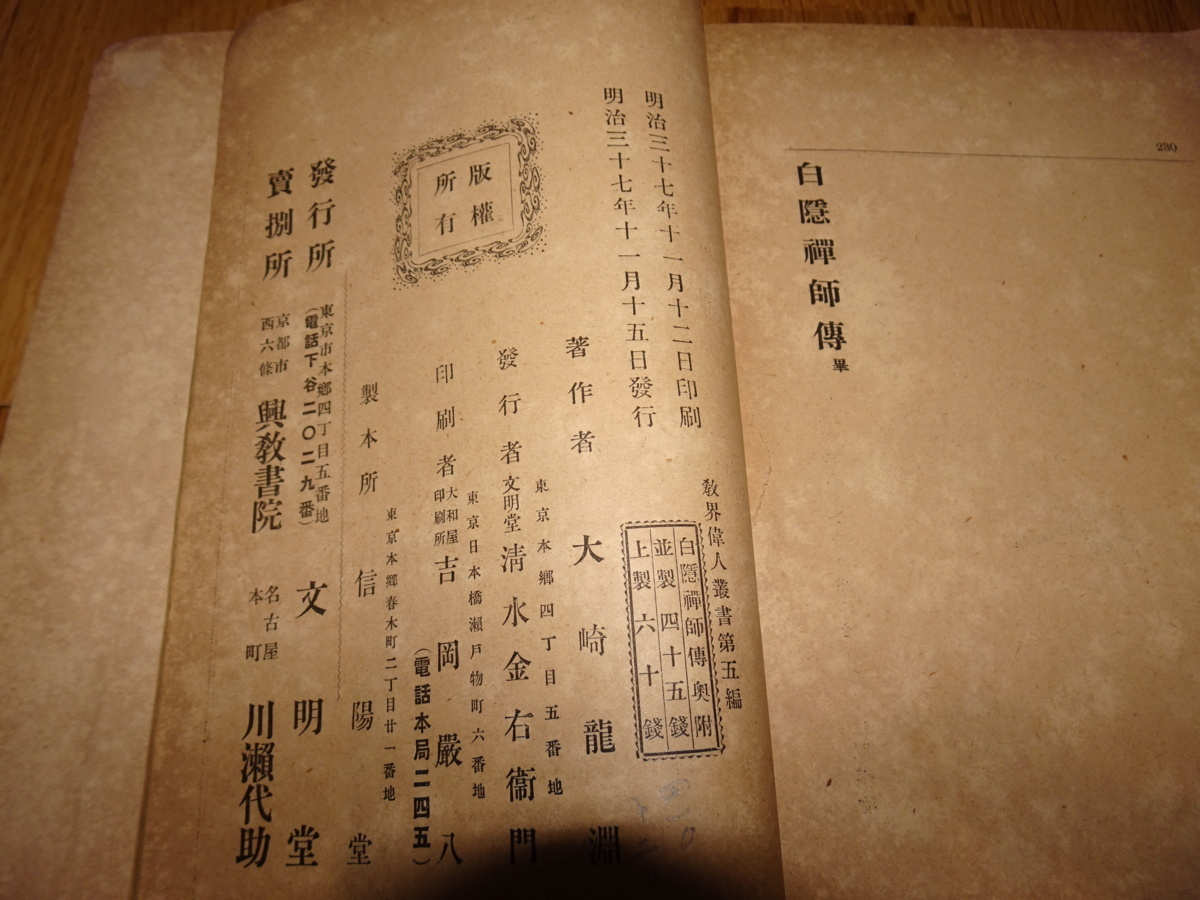 230
白隱禪師傳畢
敎界偉人叢書第五編
白隱禪師傳奧附
並製四十五錢
上製六十錢
明治三十七年十一月十二日印刷
明治三十七年十一月十五日發行
版權
所有
著作者 大崎龍淵
東京本鄕四丁目五番地
發行者 文明堂 淸水金右衞門
東京日本橋瀨戸物町六番地
印刷者 大和屋印刷所 吉岡嚴八
(電話本局二四五)
東京本鄕春木町二丁目廿一番地
製本所 信陽堂
東京市本鄕四丁目五番地
(電話下谷二〇二九番)
發行所 文明堂
賣捌所 京都市西六條 興敎書院
名古屋本町 川瀨代助